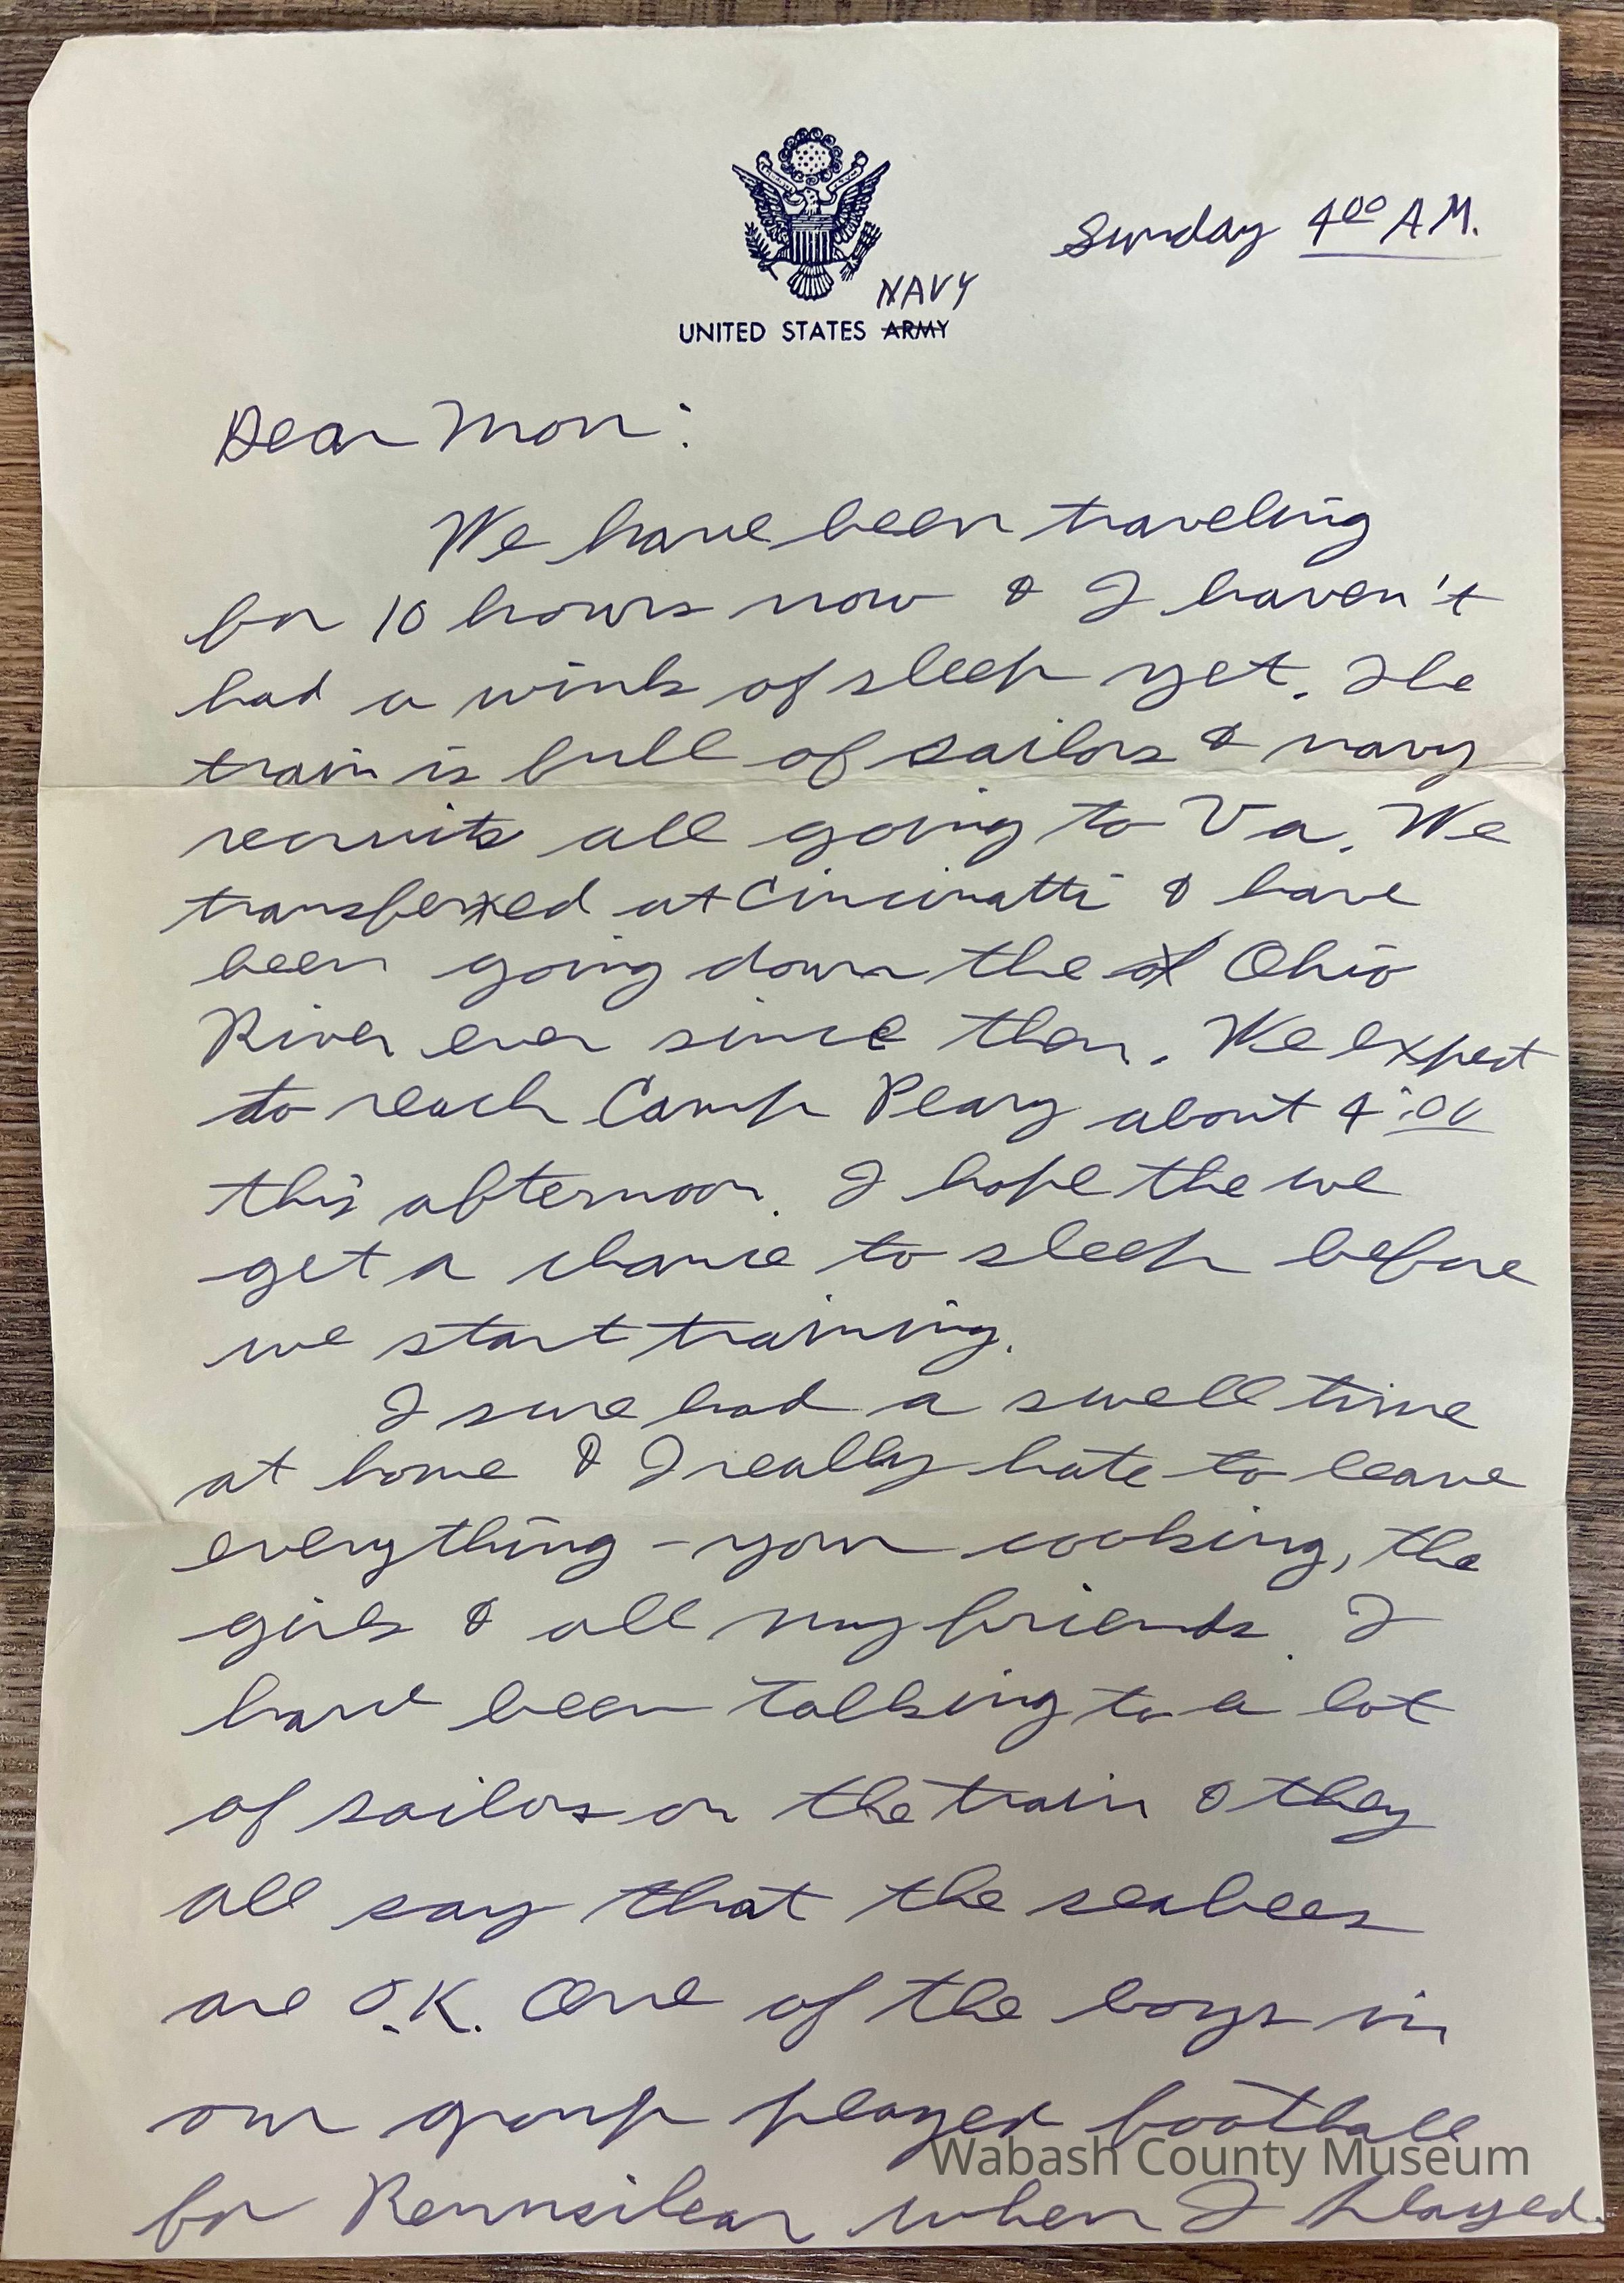 Sunday 4⁰⁰ A.M.
NAVY
UNITED STATES ARMY
Dear Mom:
We have been traveling
for 10 hours now & I haven't
had a wink of sleep yet. The
train is full of sailors & navy
recruits all going to Va. We
transferred at Cincinatti & have
been going down the of Ohio
River ever since then. We expect
to reach Camp Peary about 4:00
this afternoon. I hope the we
get a chance to sleep before
we start training.
I sure had a swell time
at home & I really hate to leave
everything - your cooking, the
girls & all my friends. I
have been talking to a lot
of sailors on the train & they
all say that the seabees
are O.K. One of the boys in
our group played football
for Rennsilear when I played.
Wabash County Museum